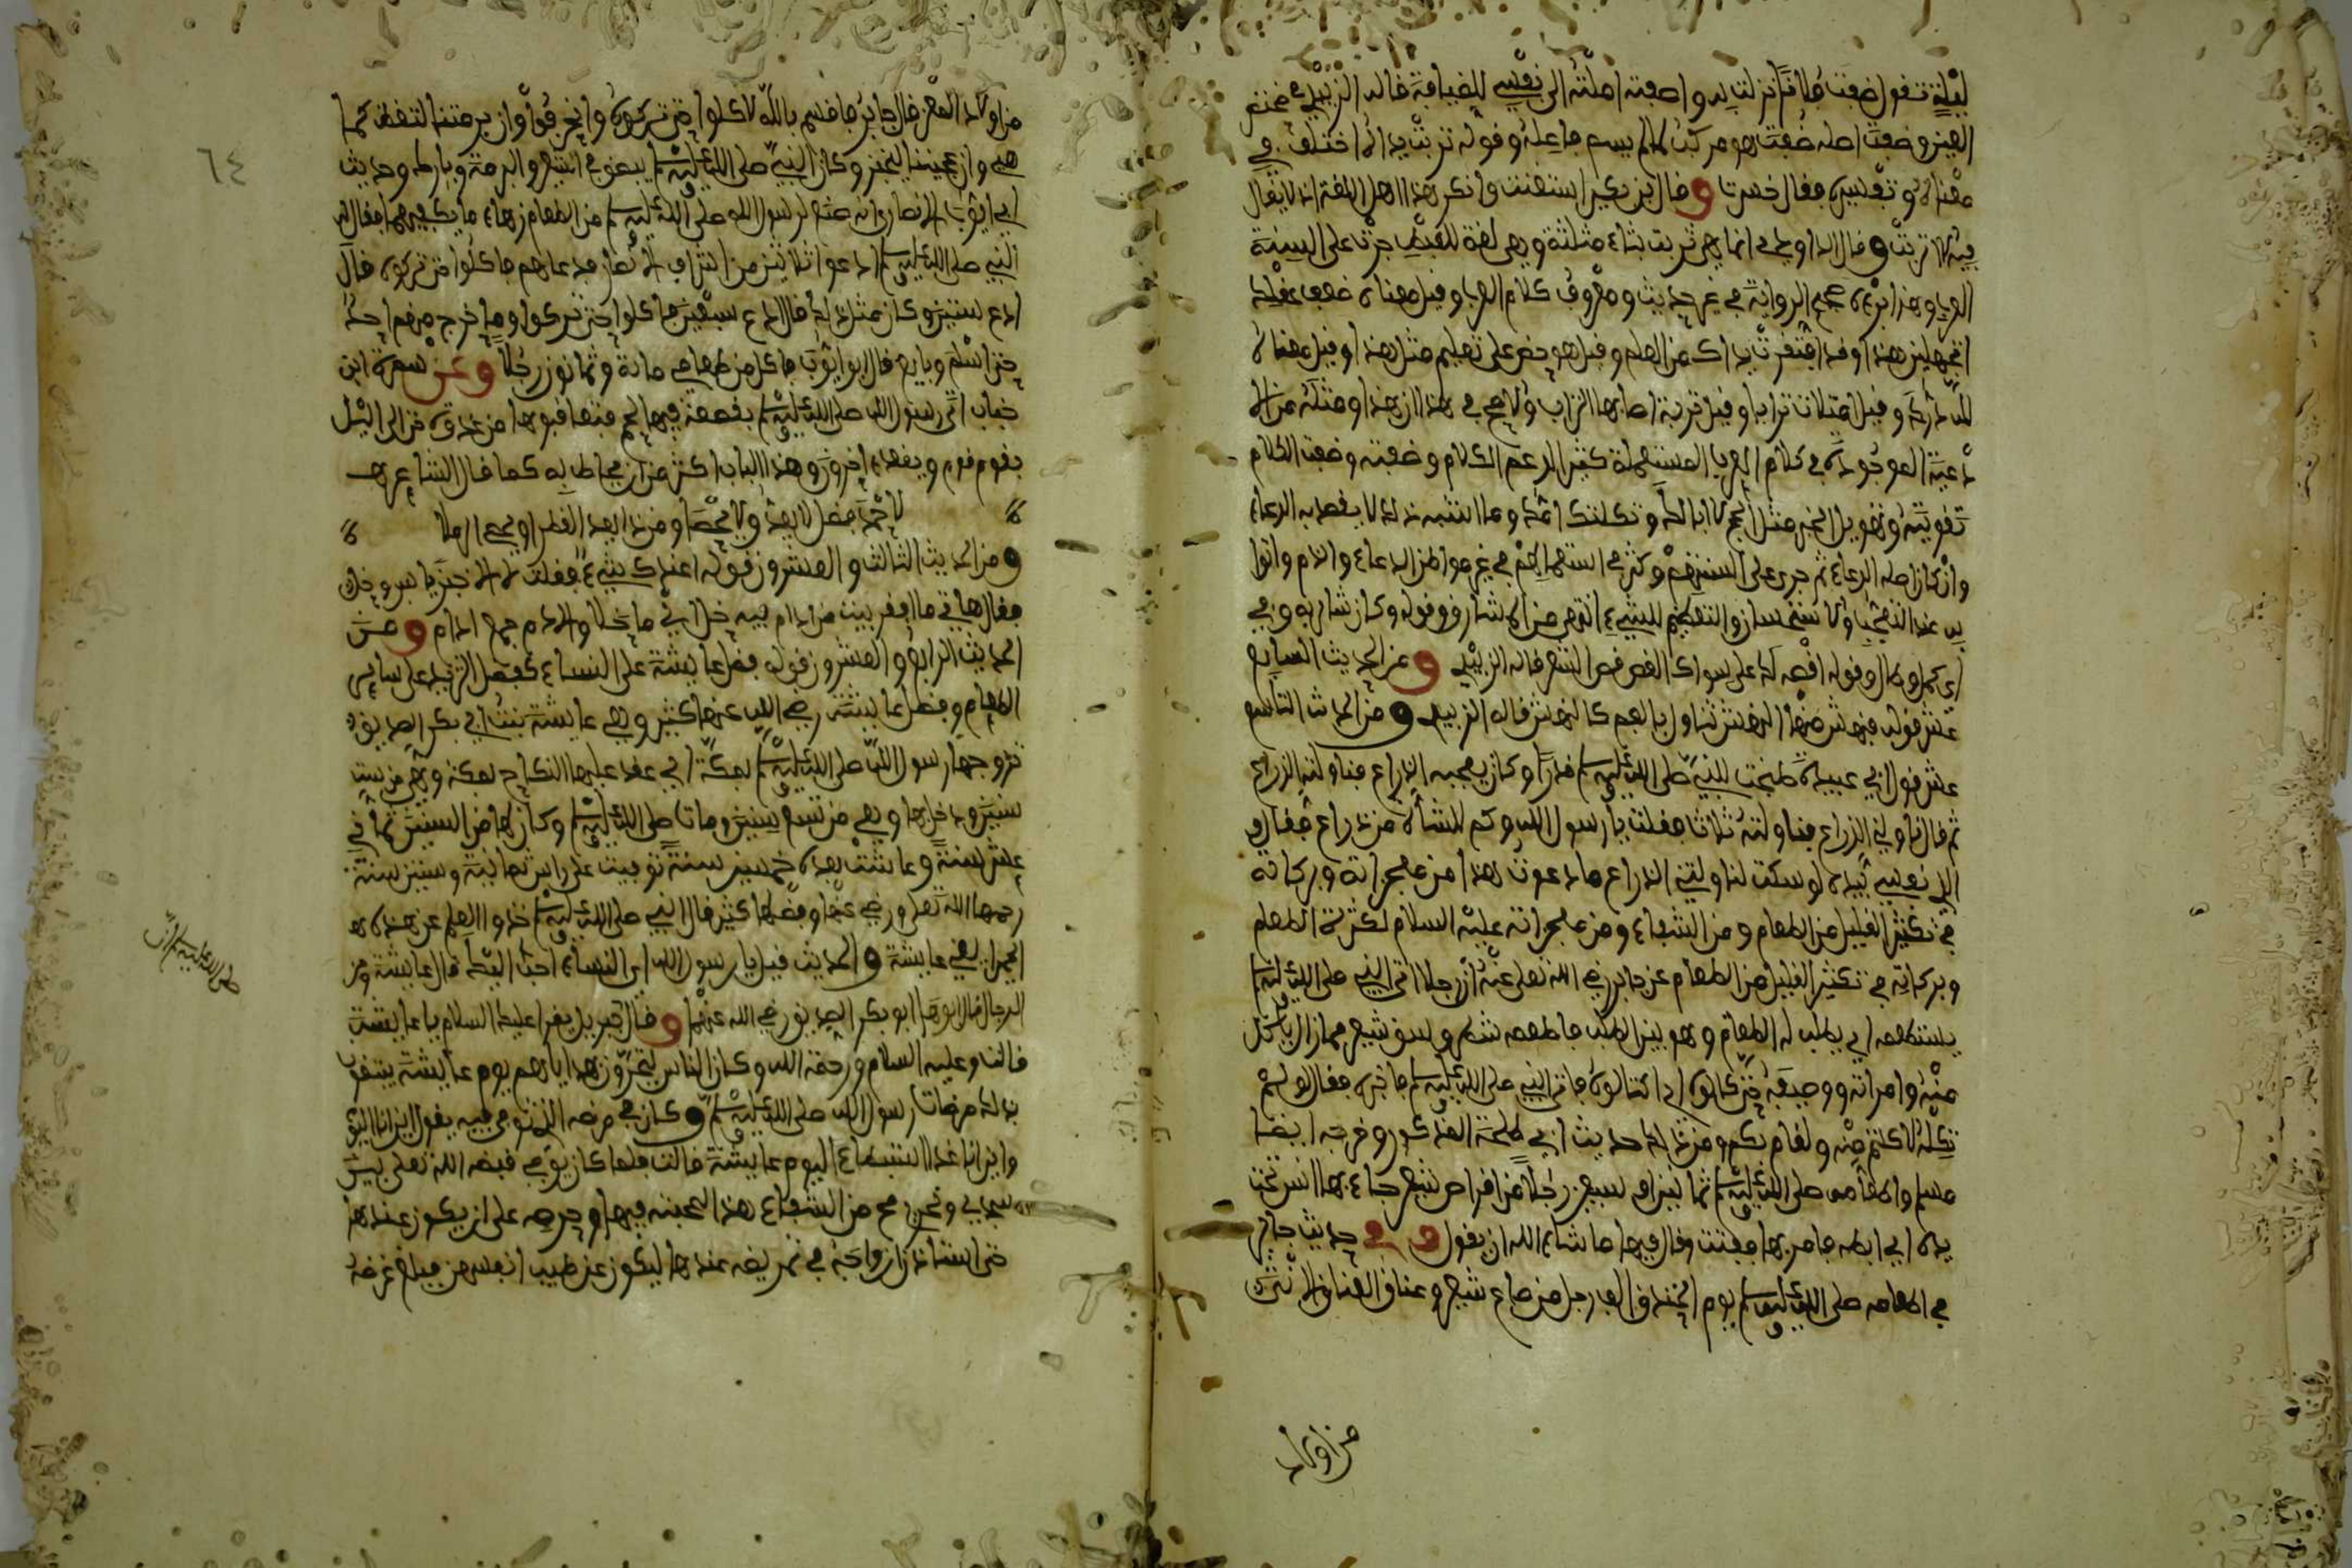 ليلة تقول ضفت فلانا نزلت به واضفته املته الى نفسي للضيافة قاله الزبيدي في مختصر
العين وضفت اصله ضفت هو مركب لما لم يسم فاعله وقوله تربت يداك اختلف في
معناه وتفسيره فقال خسرتا وقال بن بكير استغنت وانكر هذا اهل اللغة انه لا يقال
فيه الا تربت وقال الداودي انما هي ثربت بثاء مثلثة وهي لغة للقبط جرت على السنة
العرب وهذا يرده صحيح الرواية في غير حديث ومعروف كلام العرب وقيل معناه ضعف عقلك
اتجهلين هذا وقد افتقرت يداك من العلم وقيل هو حض على تعليم مثل هذا وقيل معناه
لله درك وقيل امتلات ترابا وقيل تربة اصابها التراب والاصح في هذا ان هذا ومثله من الا
دعية الموجودة في كلام العرب المستعملة كثيرا لدعم الكلام
تقويته وتهويل الخبر مثل انج لا ابا لك وثكلتك امك وما اشبه ذلك لا يقصد به الدعاء
وان كان اصله الدعاء ثم جرى على السنتهم وكثر في استعمالهم في غير مواطن الدعاء والذم واتوا
به عند التعجب والاستحسان والتعظيم للشيء انتهى من المشارق وقوله وكان شاربه وفي
اي كمل وطال وقوله اقصه لك على سواك القص قص الشعر قاله الزبيدي ومن الحديث السابع
عشر قوله فنهش منها النهش تناول بالفم كالنهش قاله الزبيدي ومن الحديث التاسع
عشر قول ابي عبيدة طبخت للنبي صلى الله عليه وسلم قدرا وكان يعجبه الذراع فناولته الذراع
ثم قال ناولني الذراع فناولته ثلاثا فقلت يا رسول الله وكم للشاة من ذراع فقال و
الذي نفسي بيده لو سكت لناولتني الذراع ما دعوت هذا من معجزاته وبركاته
في تكثير القليل من الطعام ومن الشفاء ومن معجزاته عليه السلام لكثرة الطعام
وبركاته في تكثير القليل من الطعام عن جابر رضي الله تعالى عنه ان رجلا اتى النبي صلى الله عليه وسلم
يستطعمه اي يطلب له الطعام فاطعمه شطر وسق شعير فما زال ياكل
منه وامراته وضيفه حتى كالوه فاتى النبي صلى الله عليه وسلم فاخبره فقال لو لم
تكله لاكلتم منه ولقام بكم ومن ذلك حديث ابي طلحة المذكور وخرجه ايضا
مسلم واطعامه صلى الله عليه وسلم ثمانين او سبعين رجلا من اقراص شعير جاء بها انس تحت
يده اي ابطه فامر بها ففتت وقال فيها ما شاء الله ان يقول وفي حديث جابر
في اطعامه صلى الله عليه وسلم يوم الخندق الف رجل من صاع شعير وعناق العناق الانثى
من اولاد
من اولاد المعز قال جابر فاقسم بالله لاكلوا حتى تركوه وانحرفوا وان برمتنا لتغط كما
هي وان عجيننا ليخبز وكان النبي صلى الله عليه وسلم يبصق في العجين والبرمة وبارك وحديث
ابي ايوب الانصاري انه صنع لرسول الله صلى الله عليه وسلم من الطعام زهاء ما يكفيهما فقال له
النبي صلى الله عليه وسلم ادعوا ثلاثين من اشراف الانصار فدعاهم فاكلوا حتى تركوه قال
ادع ستين وكان مثل ذلك قال ادع سبعين فاكلوا حتى تركوا وما خرج منهم احد
حتى اسلم وبايع قال ابو ايوب فاكل من طعامي مائة وثمانون رجلا وعن سمرة ابن
جناب اتى رسول الله صلى الله عليه وسلم بقصعة فيها لحم فتعاقبوها من غدوة حتى الى الليل
يقوم قوم ويقعد اخرون وهذا الباب اكثر من ان يحاط به كما قال الشاعر
ومن الحديث الثالث والعشرون قوله اعندك شيء فقلت لا الا خبز يابس وخل
فقال هاتي ما افقر بيت من ادام فيه خل اي ما خلا والادم جمع ادام ومن
الحديث الرابع والعشرون قوله فضل عايشة على النساء كفضل الثريد على ساير
الطعام وفضل عايشة رضي الله عنها كثير وهي عايشة بنت ابي بكر الصديق
تزوجها رسول الله صلى الله عليه وسلم بمكة اي عقد عليها النكاح بمكة وهي من ست
سنين ودخل بها وهي من تسع سنين ومات صلى الله عليه وسلم وكان لها من السنين ثماني
عشر سنة وعاشت بعده خمسين سنة توفيت على راس ثمانية وستين سنة
رحمها الله تعالى ورضي عنها وفضلها كثير قال النبي صلى الله عليه وسلم خذوا العلم عن هذه
الحميرا يعني عايشة والحديث قيل يا رسول الله اي النساء احب اليك قال عايشة ومن
الرجال قال ابوها ابو بكر الصديق رضي الله عنهما وقال جبريل يقرا عليك السلام يا عايشة
قالت وعليه السلام ورحمة الله وكان الناس يتحرون بهداياهم يوم عايشة يتقرب
بذلك مرضات رسول الله صلى الله عليه وسلم وكان في مرضه الذي توفي فيه يقول اين انا اليوم
واين انا غدا استبطاء اليوم عايشة قالت فلما كان يومي قبضه الله تعالى بين
سحري ونحري صح من الشفاء هذا لمحبته فيها وحرصه على ان يكون عندها
حتى استاذن ازواجه في تمريضه عندها ليكون عن طيب انفسهن فبلغ غرضه
٦٤